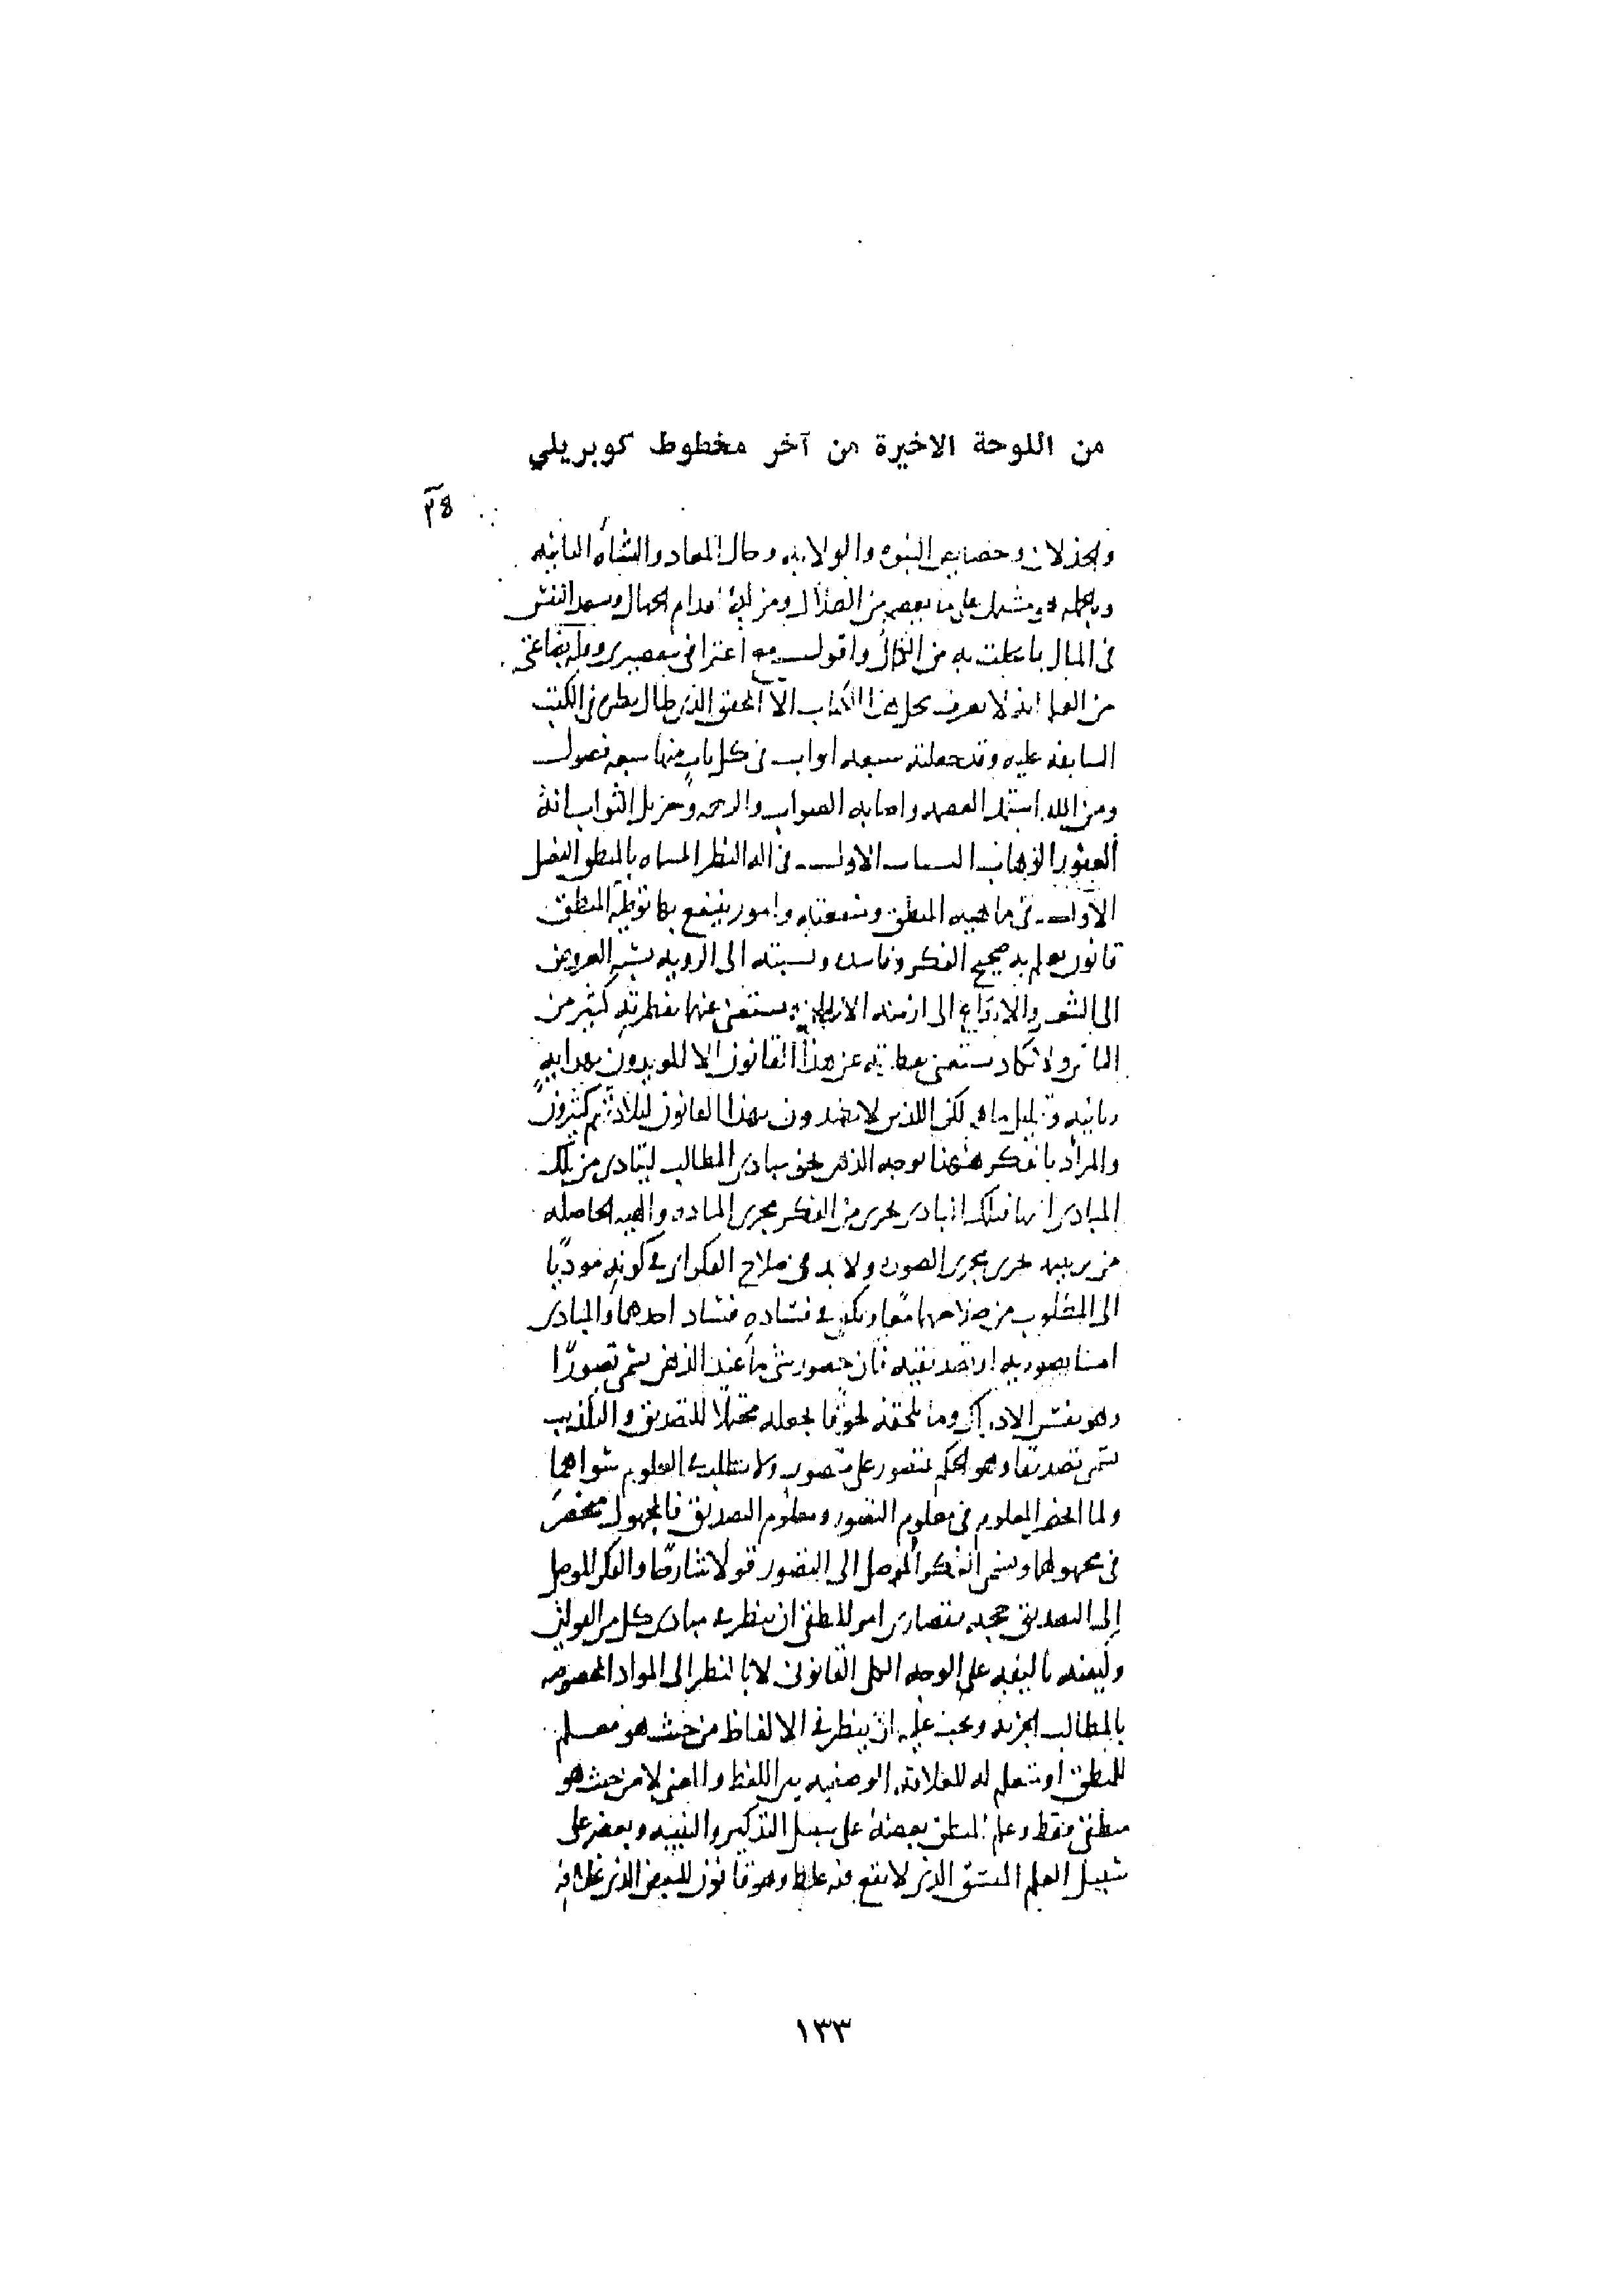 من اللوحة الاخيرة من آخر مخطوط كوبريلي
٣٤
والخذلان وخصايص النبوه والولايه وحال المعاد والنشأه الثانيه
وبالجمله فهو مشتمل على ما يعصم من الضلال ومزله اقدام الجهال ويسعد النفس
فى المآل بما تحلت به من الكمال واقول مع اعترافى بتقصيرى وقله بضاعتى
من العلم انه لا يعرف محل هذا الكتاب الا المحقق الذى طال نظره فى الكتب
السابقه عليه وقد جعلته سبعه ابواب فى كل باب منها سبعه فصول
ومن الله استمد العصمه واصابه الصواب والرحمه وجزيل الثواب انه
الغفور الوهاب الباب الاول فى اله النظر المسماه بالمنطق الفصل
الاول فى ماهيه المنطق ومنفعته وامور ينتفع بها توطئه المنطق
قانون يعلم به صحيح الفكر وفاسده ونسبته الى الرويه نسبه العروض
الى الشعر والايقاع الى ازمنه الالحان يستغنى عنهما بفطرته كثير من
الناس ولا يكاد يستغنى بفطرته عن هذا القانون الا المويدون بهدايه
ربانيه وقليل ما هم لكن الذين لا يهتدون بهذا القانون لبلادتهم كثيرون
والمراد بالفكر ههنا توجه الذهن نحو مبادى المطالب ليتادى من تلك
المبادى اليها فتلك المبادى تجرى من الفكر مجرى الماده والهيه الحاصله
من ترتيبه تجرى مجرى الصوره ولا بد فى صلاح الفكر اى فى كونه موديا
الى المطلوب من صلاحهما معا ويكفى فى فساده فساد احدهما والمبادى
اما تصوريه او تصديقيه فان حضور شى ما عند الذهن يسمى تصورا
وهو نفس الادراك وما يلحقه لحوقا يجعله محتملا للتصديق والتكذيب
يسمى تصديقا وهو الحكم بتصور على تصور ولا يطلب فى العلوم سواهما
ولما انحصر المعلوم فى معلوم التصور ومعلوم التصديق فالمجهول منحصر
فى مجهولهما ويسمى الفكر الموصل الى التصور قولا شارحا والفكر الموصل
الى التصديق حجه فقصارى امر المنطقى ان ينظر فى مبادى كل من القولين
وكيفيه تاليفه على الوجه الكلى القانونى لا بالنظر الى المواد المخصوصه
بالمطالب الجزئيه ويجب عليه ان ينظر فى الالفاظ من حيث هو معلم
للمنطق او متعلم له للعلاقه الوضعيه بين اللفظ والمعنى لا من حيث هو
منطقى فقط وعلم المنطق بعضه على سبيل التذكير والتنبيه وبعضه على
سبيل العلم المتسق الذى لا يقع فيه غلط وهو قانون للبعض الذى يغلط فيه
١٣٣